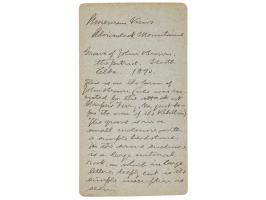 American Views
Adirondack Mountains
Grave of John Brown,
the patriot. North
Elba. 1890.
This is on the farm of
John Brown (who was
for the attack at
Harper's Ferry,
the war of the Rebellion).
The grave is in a
small enclosure with
a simple headstone.
In the same enclosure
is a large natural
rock on which in large
letters, deeply cut is the
simple inscription as
seen.